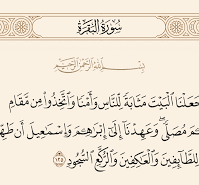 سُورَةُ البَقَرَةِ
بِسْمِ اللَّهِ الرَّحْمَٰنِ الرَّحِيمِ
جَعَلْنَا ٱلْبَيْتَ مَثَابَةً لِّلنَّاسِ وَأَمْنًا وَٱتَّخِذُوا۟ مِن مَّقَامِ
مُصَلًّى ۖ وَعَهِدْنَآ إِلَىٰٓ إِبْرَٰهِـۧمَ وَإِسْمَـٰعِيلَ أَن
لِلطَّآئِفِينَ وَٱلْعَـٰكِفِينَ وَٱلرُّكَّعِ ٱلسُّجُودِ ١٢٥